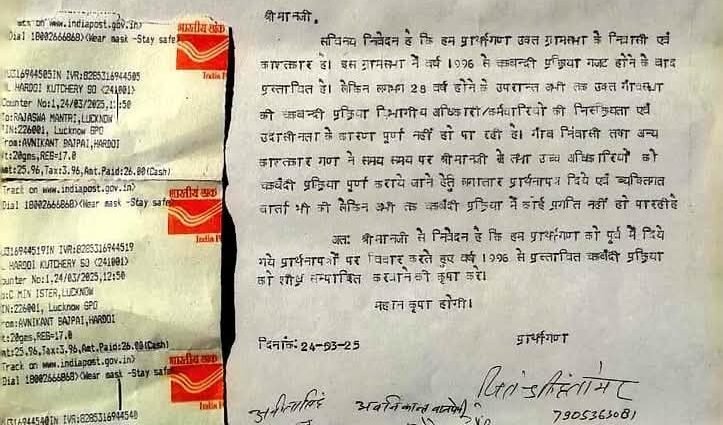 Track on www.indiapost.gov.in>
Dial 18002666868) <Wear mask -Stay safe
भारतीय डाक
India
U316944505IN IVR:8285316944505
L HARDOI KUTCHERY SO <241001>
Counter No:1,24/03/2025,12:50
To:RAJASWA MANTRI,LUCKNOW
PIN:226001, Lucknow GPO
From:AVNIKANT BAJPAI,HARDOI
Wt:20gms,REG=17.0
Amt:25.96,Tax:3.96,Amt.Paid:26.00(Cash)
Track on www.indiapost.gov.in>
Dial 18002666868) <Wear mask -Stay safe
भारतीय डाक
India P
U316944519IN IVR:8285316944519
L HARDOI KUTCHERY SO <241001>
Counter No:1,24/03/2025,12:50
To:C MIN ISTER,LUCKNOW
PIN:226001, Lucknow GPO
From:AVNIKANT BAJPAI,HARDOI
Wt:20gms,REG=17.0
Amt:25.96,Tax:3.96,Amt.Paid:26.00(Cash)
Track on www.indiapost.gov.in>
Dial 18002666868) <Wear mask -Stay safe
भारतीय डाक
India
U316944540IN IVR:8285316944540
श्रीमानजी,
सविनय निवेदन है कि हम प्रार्थीगण उक्त ग्रामसभा के निवासी एवं
काश्तकार है। इस ग्रामसभा में वर्ष 1996 से चकबन्दी प्रक्रिया गजट होने के बाद
प्रस्तावित है। लेकिन लगभग 28 वर्ष होने के उपरान्त अभी तक उक्त गाँवसभा
की चकबन्दी प्रक्रिया विभागीय अधिकारी/कर्मचारियों की निसक्रियता एवं
उदासीनता के कारण पूर्ण नहीं हो पा रही है। गाँव निवासी तथा अन्य
काश्तकार गण ने समय समय पर श्रीमानजी से तथा उच्च अधिकारियों को
चकबंदी प्रक्रिया पूर्ण कराये जाने हेतु लगातार प्रार्थनापत्र दिये एवं व्यक्तिगत
वार्ता भी की लेकिन अभी तक चकबंदी प्रक्रिया में कोई प्रगति नहीं हो पा रही है
अतः श्रीमानजी से निवेदन है कि हम प्रार्थीगण को पूर्व में दिये
गये प्रार्थनापत्रों पर विचार करते हुए वर्ष 1996 से प्रस्तावित चकबंदी प्रक्रिया
को शीघ्र सम्पादित करवाने की कृपा करें।
महान कृपा होगी।
दिनांक: 24-03-25
प्रार्थीगण
अवनिकान्त बाजपेयी
7905363081